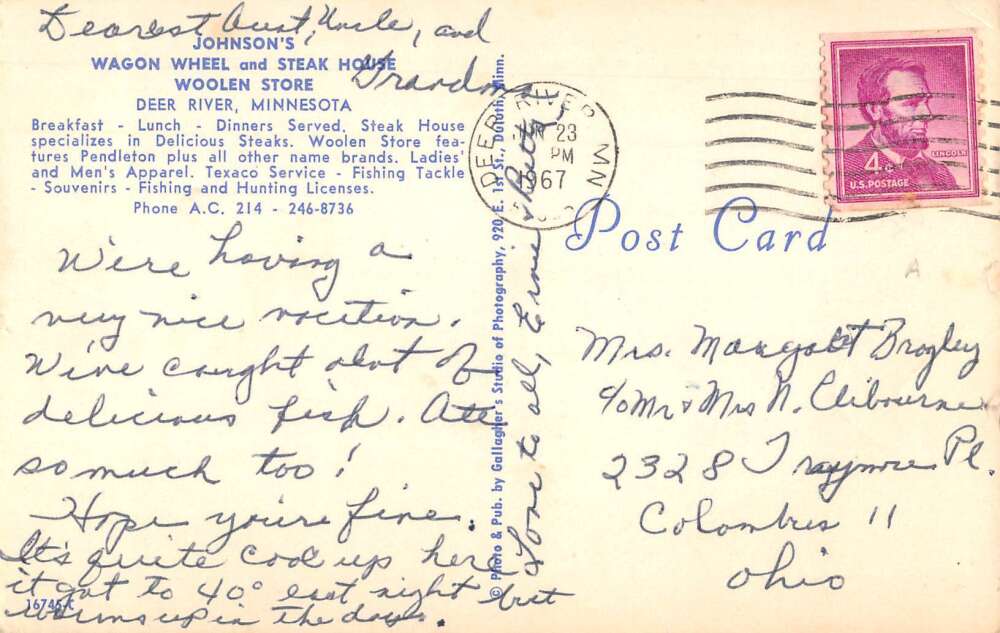 Dearest Aunt, Uncle, and
Grandma
JOHNSON'S
WAGON WHEEL and STEAK HOUSE
WOOLEN STORE
DEER RIVER, MINNESOTA
Breakfast - Lunch - Dinners Served. Steak House
specializes in Delicious Steaks. Woolen Store fea-
tures Pendleton plus all other name brands. Ladies'
and Men's Apparel. Texaco Service - Fishing Tackle
- Souvenirs - Fishing and Hunting Licenses.
Phone A.C. 214 - 246-8736
We're having a
very nice vacation.
We've caught alot of
delicious fish. Ate
so much too!
Hope you're fine.
It's quite cool up here
it got to 40° last night but
warms up in the day.
16746-C
Love to all, Ernie & Patty
© Photo & Pub. by Gallagher's Studio of Photography, 920 E. 1st St., Duluth, Minn.
DEER RIVER MN
JUN 23
PM
1967
4¢
LINCOLN
U.S. POSTAGE
Post Card
A
Mrs. Margaret Brogley
c/o Mr & Mrs N. Clibourne
2328 Traymore Pl.
Columbus 11
Ohio